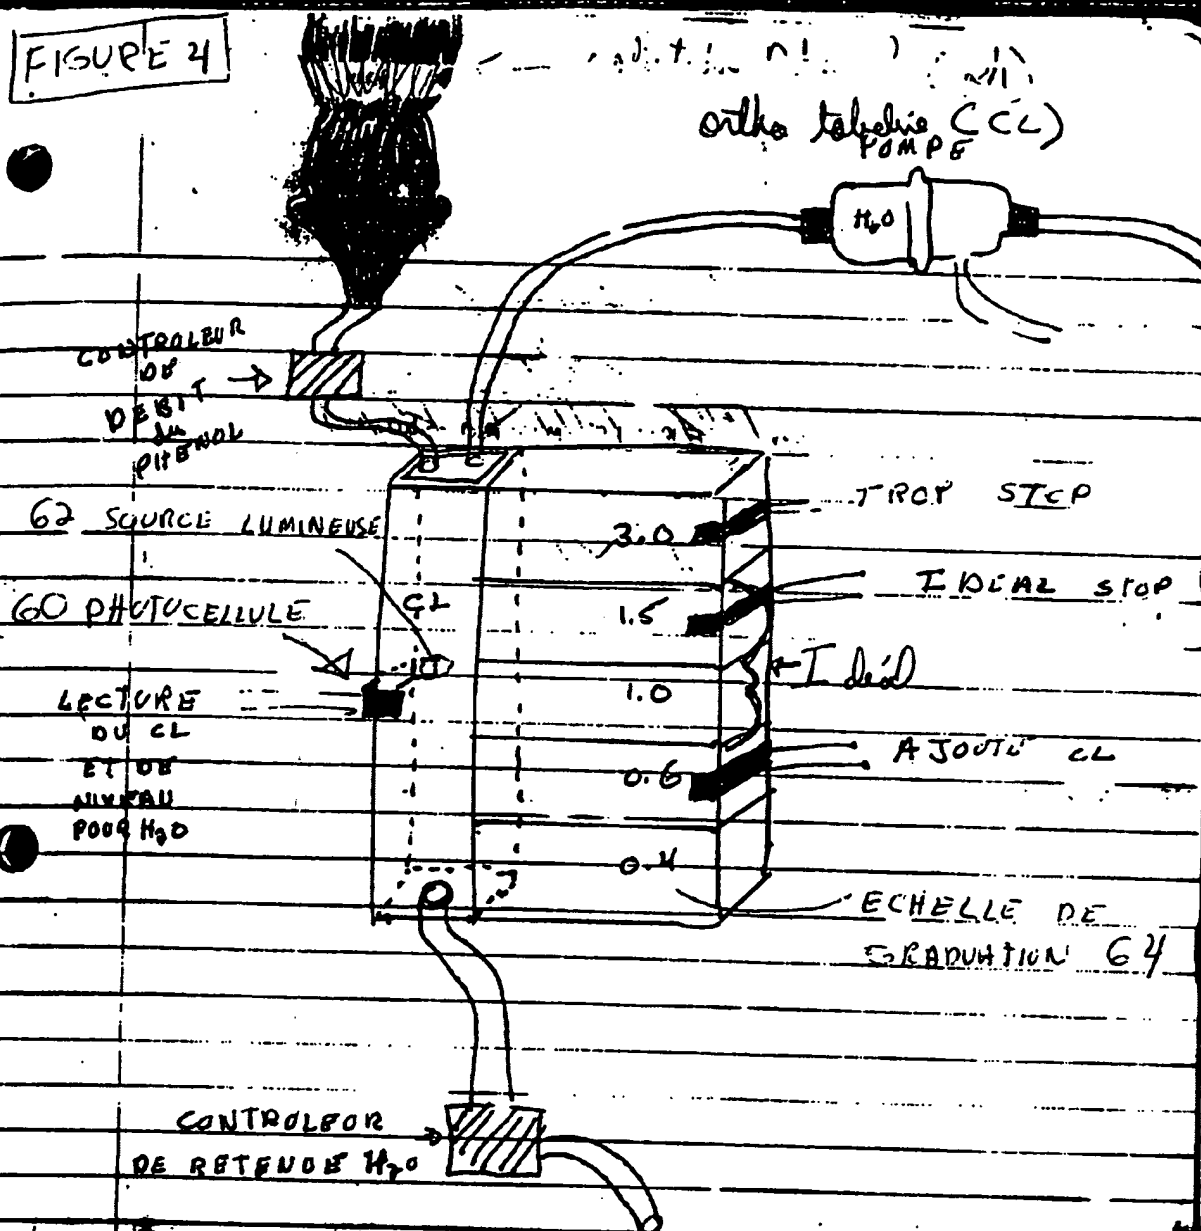 FIGURE 4
ortho tolidine (CL)
POMPE
H2O
CONTROLEUR
DE
DEBIT
du
PHENOL
62 SOURCE LUMINEUSE
60 PHOTOCELLULE
CL
LECTURE
DU CL
ET DE
NIVEAU
POUR H2O
3.0
TROP STOP
1.5
IDEAL STOP
1.0
Idéal
0.6
AJOUTÉ CL
0.4
ECHELLE DE
GRADUATION 64
CONTROLEUR
DE RETENUE H2O